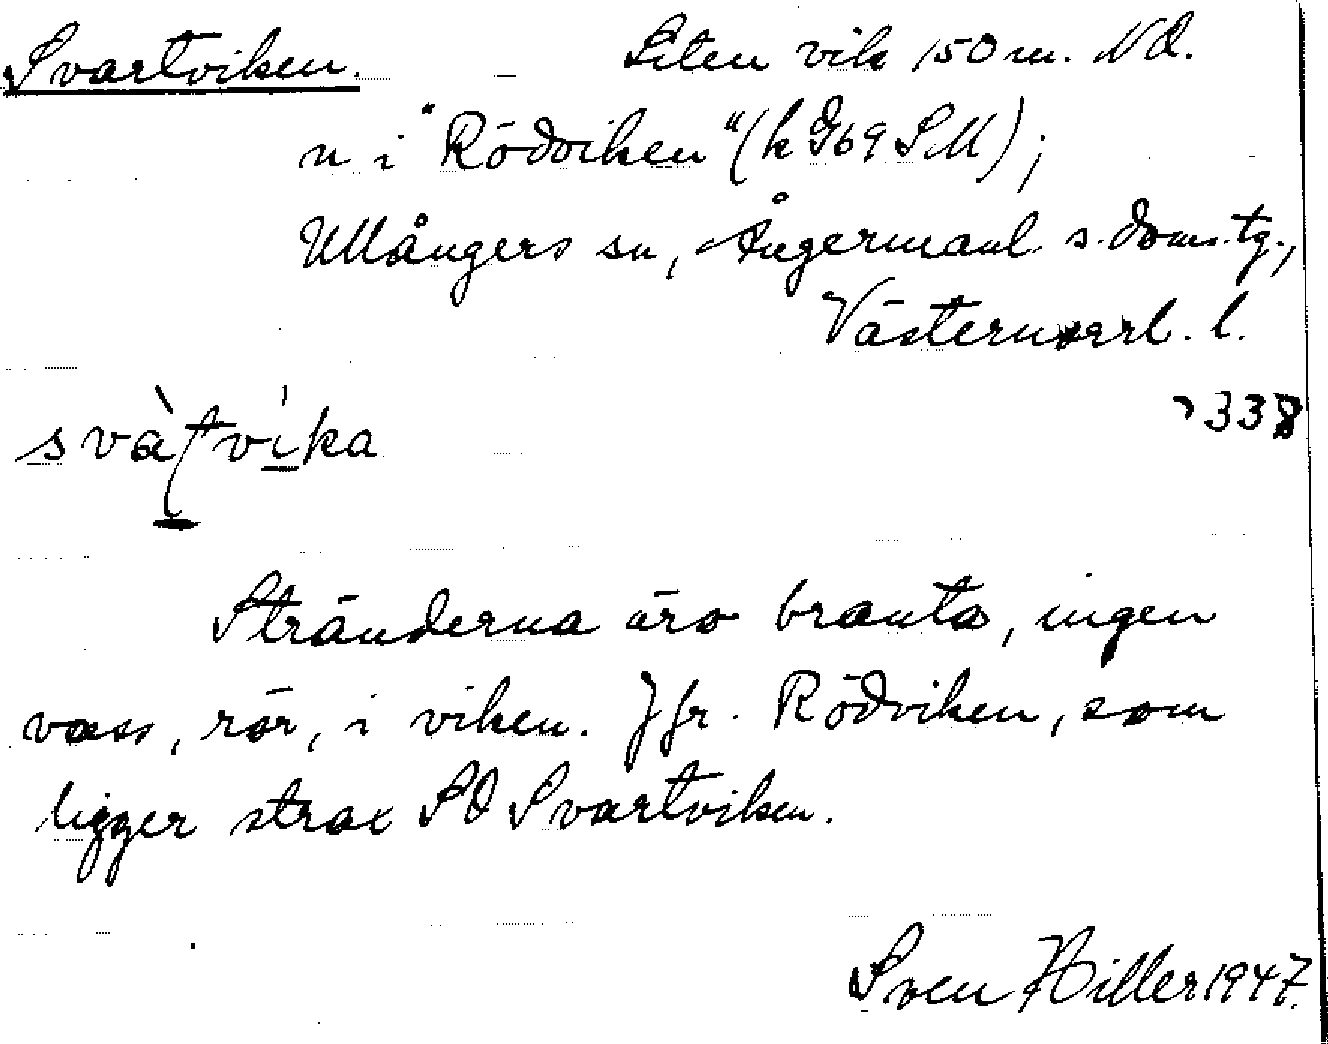 Svartviken. Liten vik 150 m. NO.
n i "Rödviken" (k G69 SM);
Ullångers sn, Ångermanl s. doms. tg.,
Västernorrl. l.
338
Stränderna äro branta, ingen
vass, rör, i viken. Jfr. Rödviken, som
ligger strax SO Svartviken.
Sven Hiller 1947.